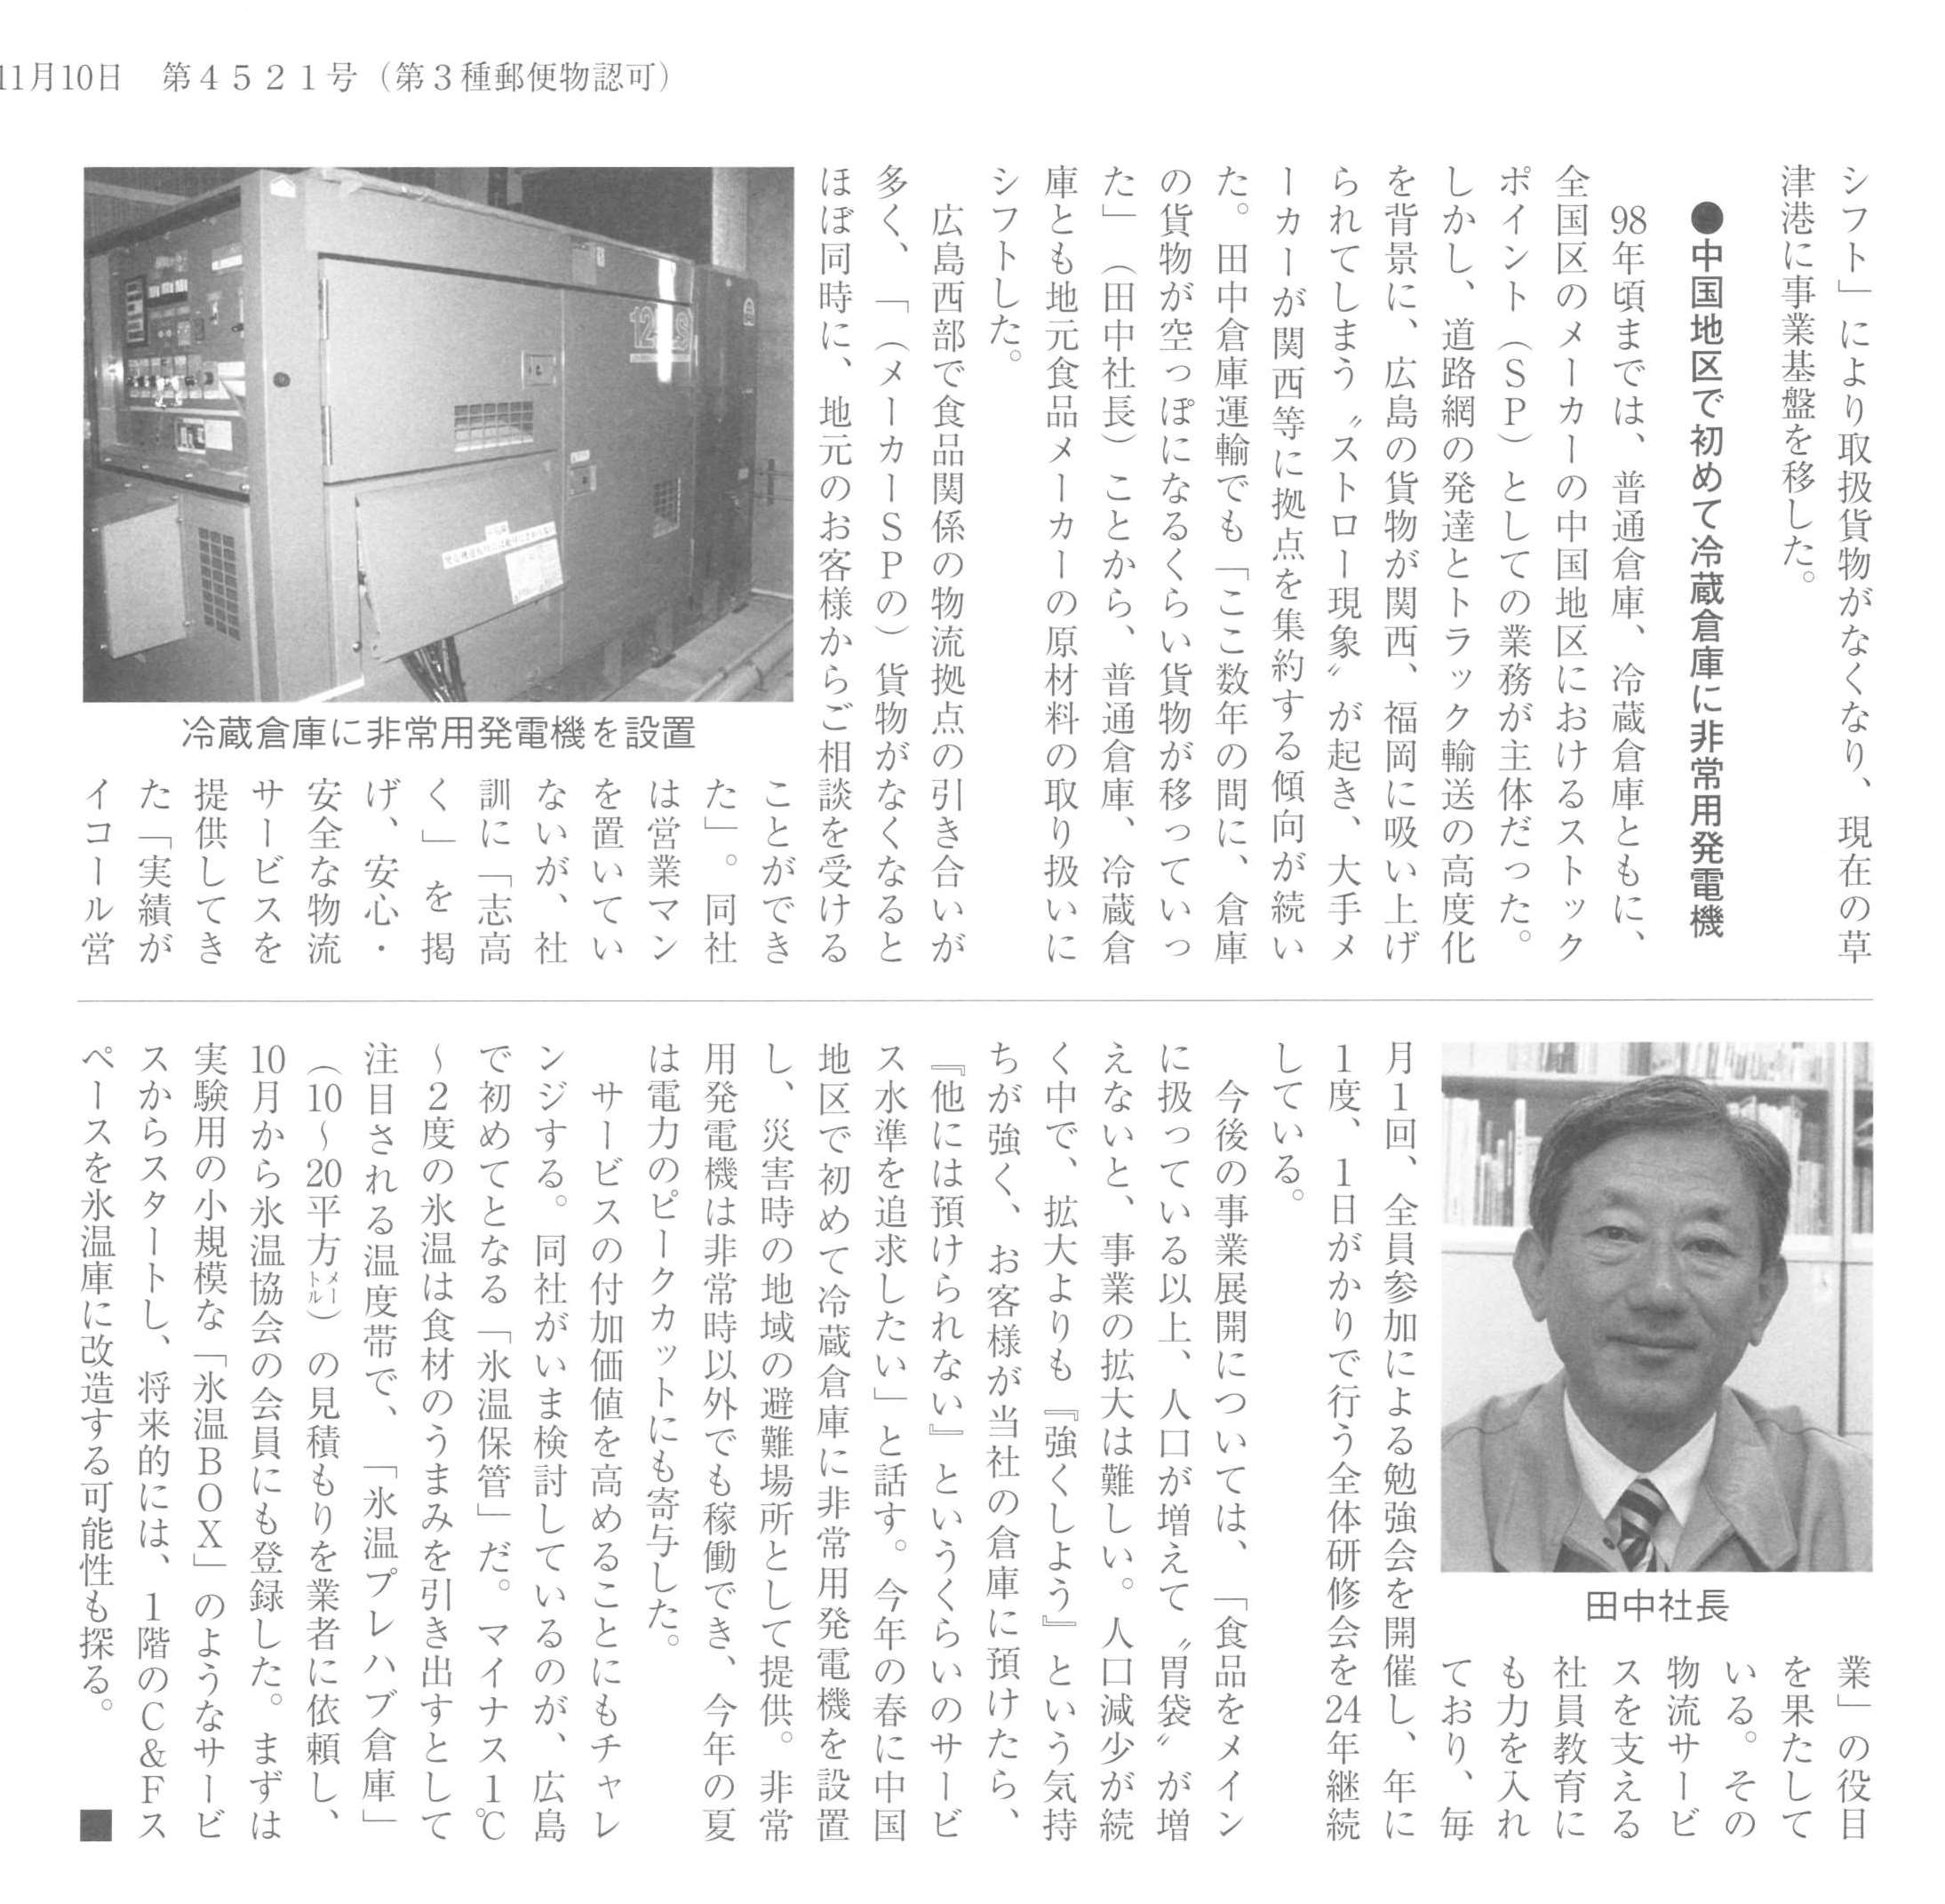 11月10日　第４５２１号（第３種郵便物認可）
シフト」により取扱貨物がなくなり、現在の草
津港に事業基盤を移した。
●中国地区で初めて冷蔵倉庫に非常用発電機
98年頃までは、普通倉庫、冷蔵倉庫ともに、
全国区のメーカーの中国地区におけるストック
ポイント（ＳＰ）としての業務が主体だった。
しかし、道路網の発達とトラック輸送の高度化
を背景に、広島の貨物が関西、福岡に吸い上げ
られてしまう〝ストロー現象〟が起き、大手メ
ーカーが関西等に拠点を集約する傾向が続い
た。田中倉庫運輸でも「ここ数年の間に、倉庫
の貨物が空っぽになるくらい貨物が移っていっ
た」（田中社長）ことから、普通倉庫、冷蔵倉
庫とも地元食品メーカーの原材料の取り扱いに
シフトした。
広島西部で食品関係の物流拠点の引き合いが
多く、「（メーカーＳＰの）貨物がなくなると
ほぼ同時に、地元のお客様からご相談を受ける
冷蔵倉庫に非常用発電機を設置
ことができ
た」。同社
は営業マン
を置いてい
ないが、社
訓に「志高
く」を掲
げ、安心・
安全な物流
サービスを
提供してき
た「実績が
イコール営
田中社長
業」の役目
を果たして
いる。その
物流サービ
スを支える
社員教育に
も力を入れ
ており、毎
月１回、全員参加による勉強会を開催し、年に
１度、１日がかりで行う全体研修会を24年継続
している。
今後の事業展開については、「食品をメイン
に扱っている以上、人口が増えて〝胃袋〟が増
えないと、事業の拡大は難しい。人口減少が続
く中で、拡大よりも『強くしよう』という気持
ちが強く、お客様が当社の倉庫に預けたら、
『他には預けられない』というくらいのサービ
ス水準を追求したい」と話す。今年の春に中国
地区で初めて冷蔵倉庫に非常用発電機を設置
し、災害時の地域の避難場所として提供。非常
用発電機は非常時以外でも稼働でき、今年の夏
は電力のピークカットにも寄与した。
サービスの付加価値を高めることにもチャレ
ンジする。同社がいま検討しているのが、広島
で初めてとなる「氷温保管」だ。マイナス１℃
～２度の氷温は食材のうまみを引き出すとして
注目される温度帯で、「氷温プレハブ倉庫」
（10～20平方メートル）の見積もりを業者に依頼し、
10月から氷温協会の会員にも登録した。まずは
実験用の小規模な「氷温ＢＯＸ」のようなサービ
スからスタートし、将来的には、１階のＣ＆Ｆス
ペースを氷温庫に改造する可能性も探る。
■